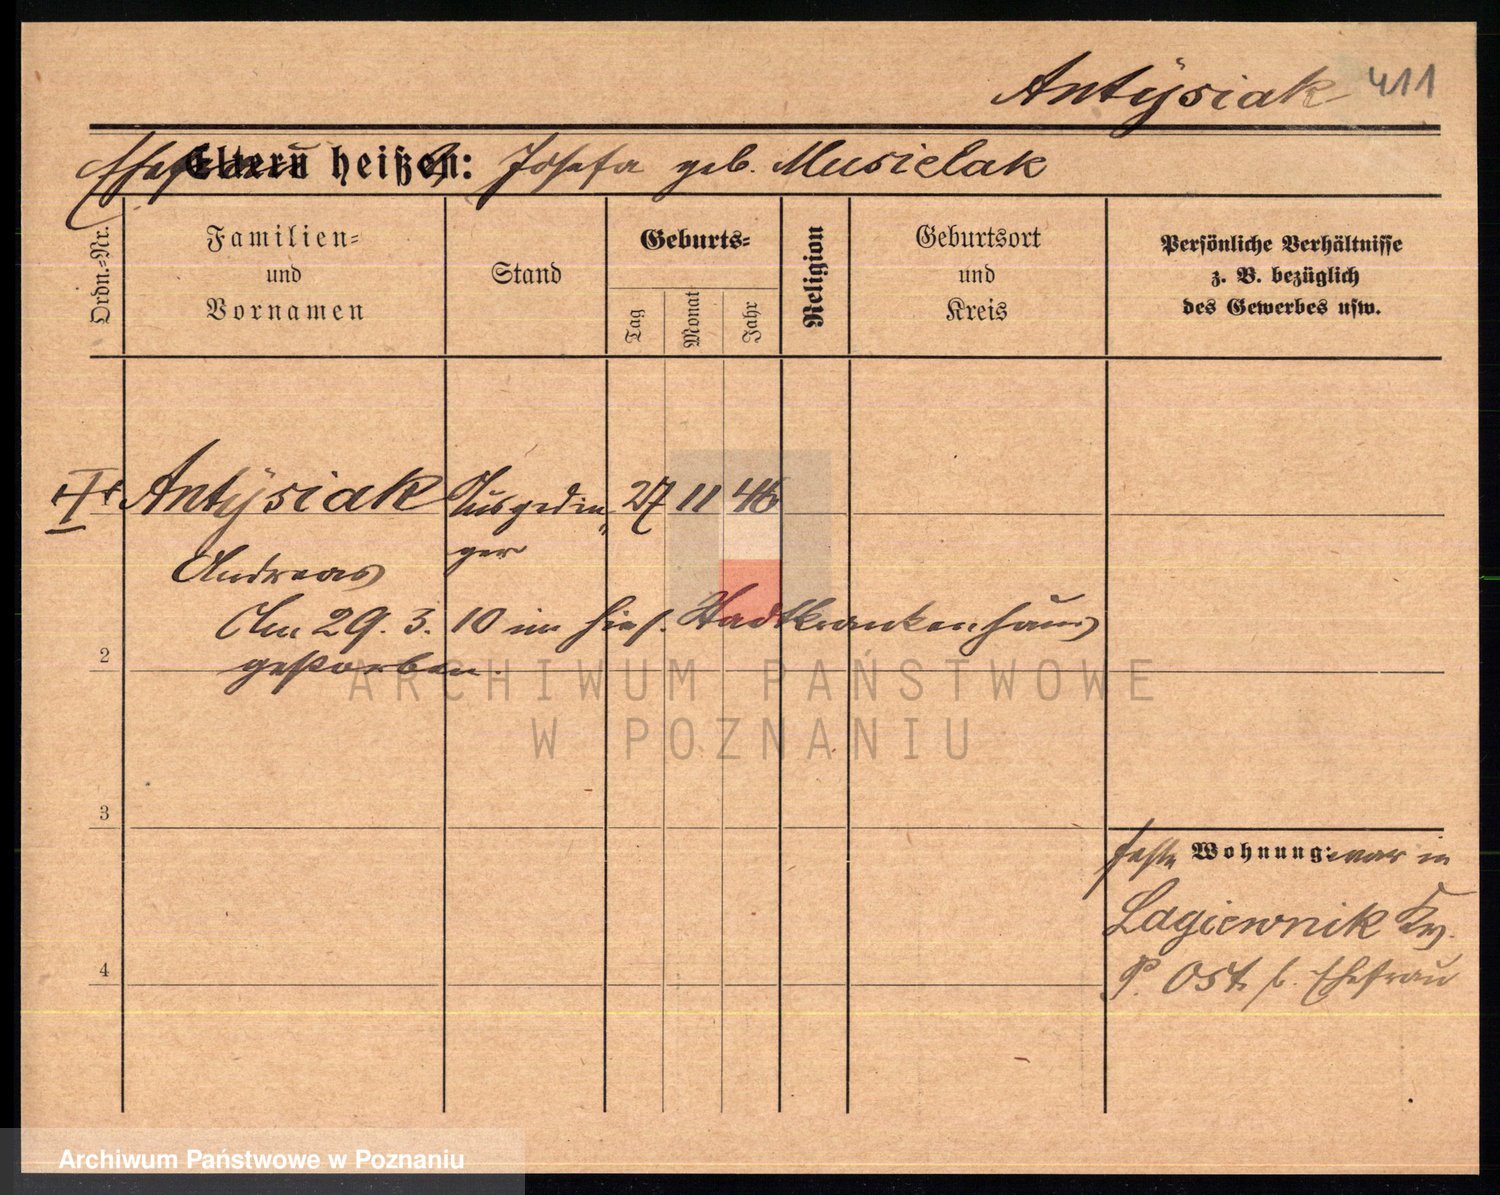 Antÿsiak 411
Ehefrau Eltern heißen: Josefa geb. Musielak
Ordn.=Nr.
Familien=
und
Vornamen
Stand
Geburts=
Tag
Monat
Jahr
Religion
Geburtsort
und
Kreis
Persönliche Verhältnisse
z. B. bezüglich
des Gewerbes usw.
Antÿsiak Ausgedin„ 27 11 46
ger
Andreas
Am 29. 3. 10 im hies. Stadtkrankenhaus
2 gestorben.
ARCHIWUM PAŃSTWOWE
W POZNANIU
3
feste Wohnung: war in
Lagiewnik Kr.
4 P. Ost b. Ehefrau
Archiwum Państwowe w Poznaniu